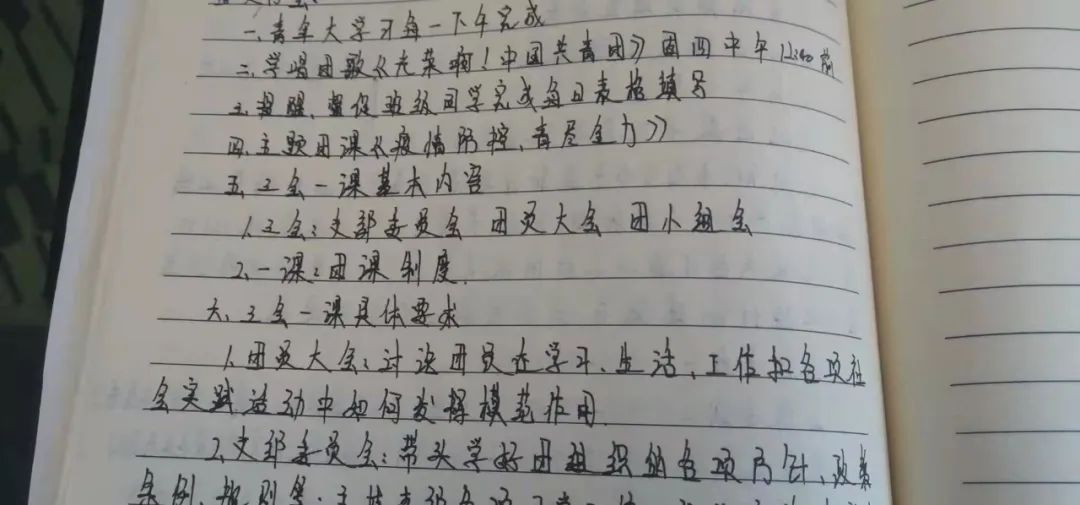 一.青年大学习每一下午完成
二.学唱团歌《光荣啊!中国共青团》周四中午12:40前
三.提醒、督促班级同学完成每日表格填写
四.主题团课《疫情防控,青尽全力》
五.三会一课基本内容
1.三会:支部委员会 团员大会 团小组会
2.一课:团课制度.
六.三会一课具体要求
1.团员大会:讨论团员在学习、生活、工作和各项社
会实践活动中如何发挥模范作用.
2.支部委员会:带头学好团组织的各项方针、政策
条例、规则等;主持支部各项